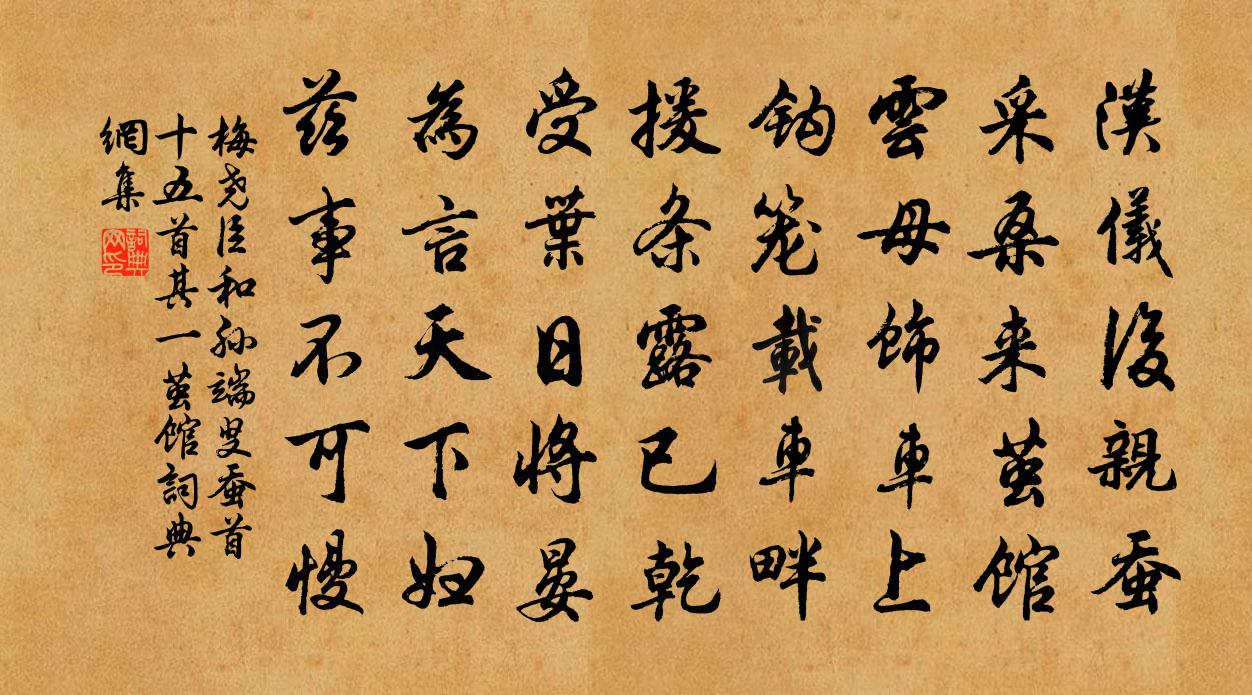 漢儀後親蚕
采桑来茧館
雲母飾車上
鈎笼載車畔
援条露已乾
受葉日将晏
為言天下妇
兹事不可慢
梅尧臣和孙端叟蚕首
十五首其一茧馆詞典
網集
詞典網印